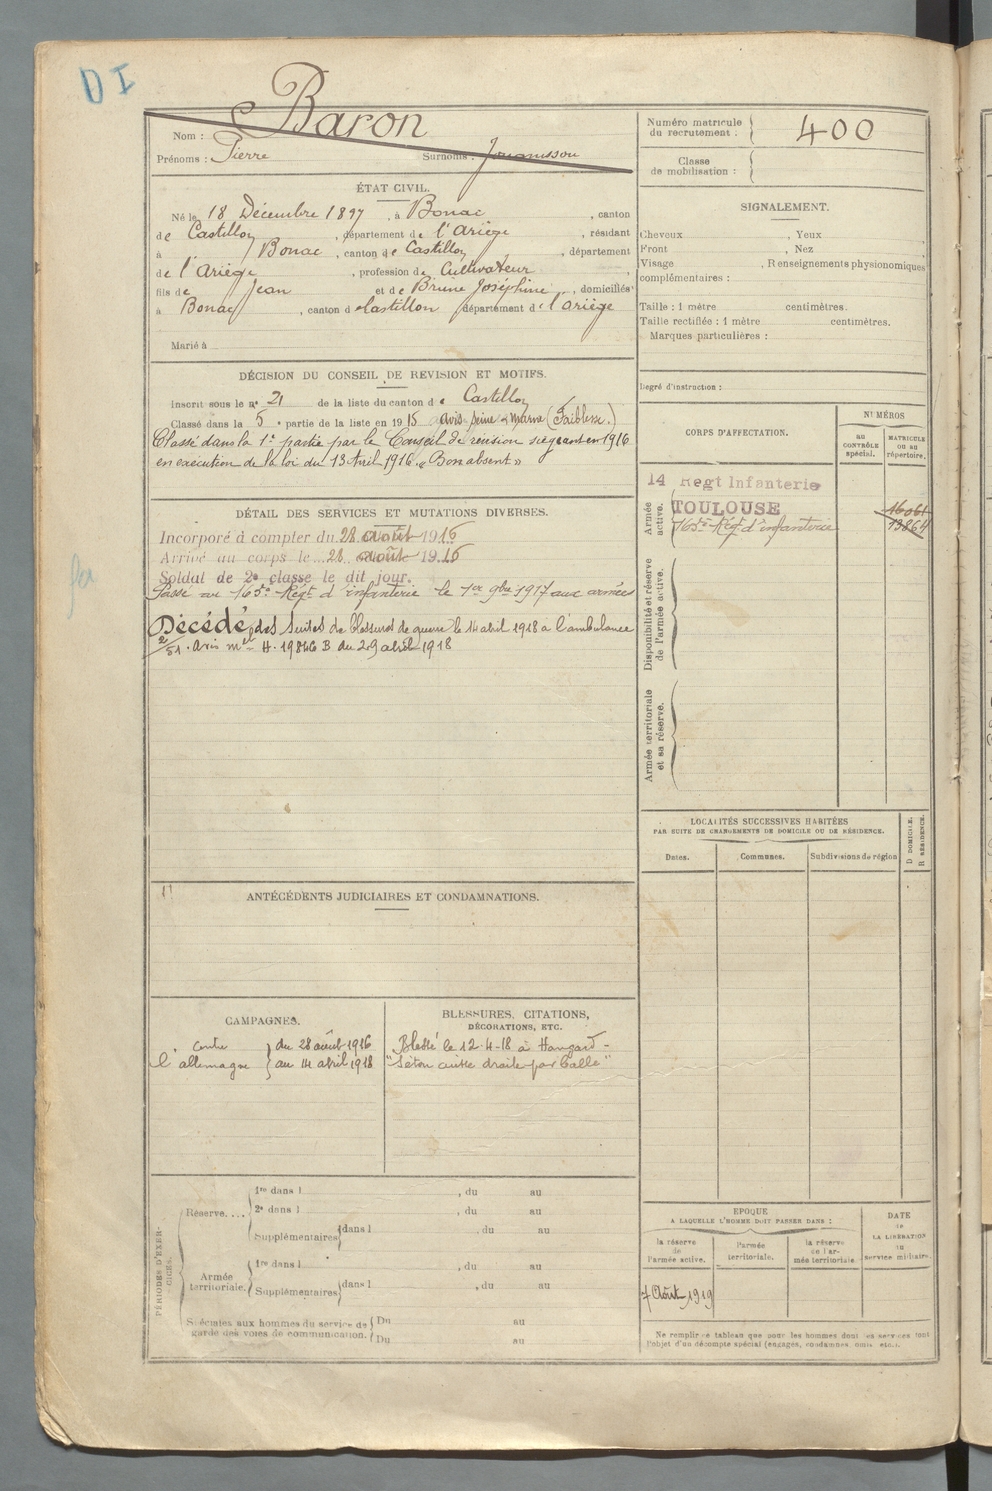 D I
Nom : Baron
Prénoms : Pierre Surnoms :
Numéro matricule du recrutement : 400
Classe de mobilisation :
ÉTAT CIVIL.
Né le 18 Décembre 1897, à Bonac, canton
de Castillon, département de l'Ariège, résidant
à Bonac, canton de Castillon, département
de l'Ariège, profession de Cultivateur
fils de Jean et de Brune Joséphine, domiciliés
à Bonac, canton de Castillon département de l'Ariège
Marié à
SIGNALEMENT.
Cheveux , Yeux
Front , Nez
Visage , Renseignements physionomiques
complémentaires :
Taille : 1 mètre centimètres.
Taille rectifiée : 1 mètre centimètres.
Marques particulières :
Degré d'instruction :
DÉCISION DU CONSEIL DE REVISION ET MOTIFS.
Inscrit sous le nº 21 de la liste du canton de Castillon
Classé dans la 5e partie de la liste en 1915 avis Seine & Marne (Faiblesse.)
Classé dans la 1e partie par le Conseil de révision siégeant en 1916
en exécution de la loi du 13 Avril 1916. « Bon absent »
DÉTAIL DES SERVICES ET MUTATIONS DIVERSES.
Incorporé à compter du 28 août 1916
Arrivé au corps le 28 août 1916
Soldat de 2e classe le dit jour.
Passé au 165e Régt d'infanterie le 1er 9bre 1917 aux armées
Décédé, des suites de blessures de guerre le 14 avril 1918 à l'ambulance
2/51. Avis mel H. 19846 B du 29 avril 1918
CORPS D'AFFECTATION.
NUMÉROS
au CONTRÔLE spécial.
MATRICULE ou au répertoire.
Armée active.
14 Régt Infanterie
TOULOUSE
16061
165e Régt d'infanterie 13864
Disponibilité et réserve de l'armée active.
Armée territoriale et sa réserve.
LOCALITÉS SUCCESSIVES HABITÉES
PAR SUITE DE CHANGEMENTS DE DOMICILE OU DE RÉSIDENCE.
Dates. Communes. Subdivisions de région
D DOMICILE. R RÉSIDENCE.
ANTÉCÉDENTS JUDICIAIRES ET CONDAMNATIONS.
CAMPAGNES.
Contre du 28 août 1916
l'allemagne au 14 avril 1918
BLESSURES, CITATIONS,
DÉCORATIONS, ETC.
Blessé le 12-4-18 à Hangard -
"Séton cuisse droite par balle"
PÉRIODES D'EXERCICES.
Réserve....
1re dans l , du au
2e dans l , du au
Supplémentaires dans l , du au
Armée territoriale.
1re dans l , du au
Supplémentaires dans l , du au
Spéciales aux hommes du service de garde des voies de communication. Du au
Du au
EPOQUE
A LAQUELLE L'HOMME DOIT PASSER DANS :
la réserve de l'armée active.
l'armée territoriale.
la réserve de l'armée territoriale.
DATE de LA LIBÉRATION du service militaire.
7 Août 1919
Ne remplir ce tableau que pour les hommes dont les services font
l'objet d'un décompte spécial (engagés, condamnés, omis, etc.).